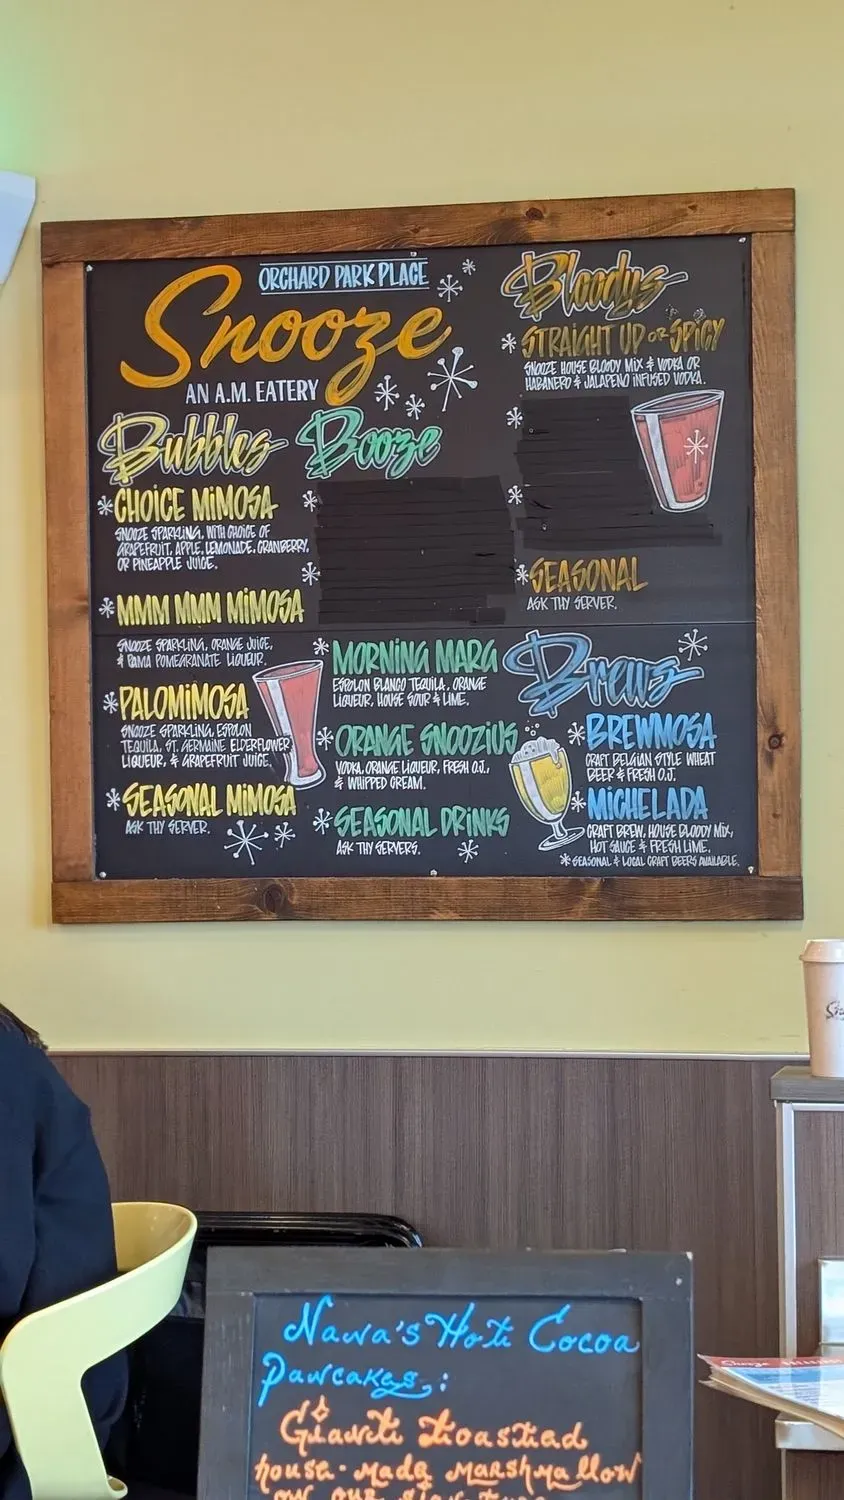 ORCHARD PARK PLACE
Snooze
AN A.M. EATERY
Bubbles
CHOICE MIMOSA
SNOOZE SPARKLING, WITH CHOICE OF
GRAPEFRUIT, APPLE, LEMONADE, CRANBERRY,
OR PINEAPPLE JUICE.
MMM MMM MIMOSA
SNOOZE SPARKLING, ORANGE JUICE,
& PAMA POMEGRANATE LIQUEUR.
PALOMIMOSA
SNOOZE SPARKLING, ESPOLON
TEQUILA, ST. GERMAINE ELDERFLOWER
LIQUEUR, & GRAPEFRUIT JUICE.
SEASONAL MIMOSA
ASK THY SERVER.
Booze
MORNING MARG
ESPOLON BLANCO TEQUILA, ORANGE
LIQUEUR, HOUSE SOUR & LIME.
ORANGE SNOOZIUS
VODKA, ORANGE LIQUEUR, FRESH O.J.,
& WHIPPED CREAM.
SEASONAL DRINKS
ASK THY SERVERS.
Bloodys
STRAIGHT UP OR SPICY
SNOOZE HOUSE BLOODY MIX & VODKA OR
HABANERO & JALAPENO INFUSED VODKA.
SEASONAL
ASK THY SERVER.
Brews
BREWMOSA
CRAFT BELGIAN STYLE WHEAT
BEER & FRESH O.J.
MICHELADA
CRAFT BREW, HOUSE BLOODY MIX,
HOT SAUCE & FRESH LIME.
* SEASONAL & LOCAL CRAFT BEERS AVAILABLE.
Nana's Hot Cocoa
Pancakes:
Giant toasted
house-made marshmallow
on our signature